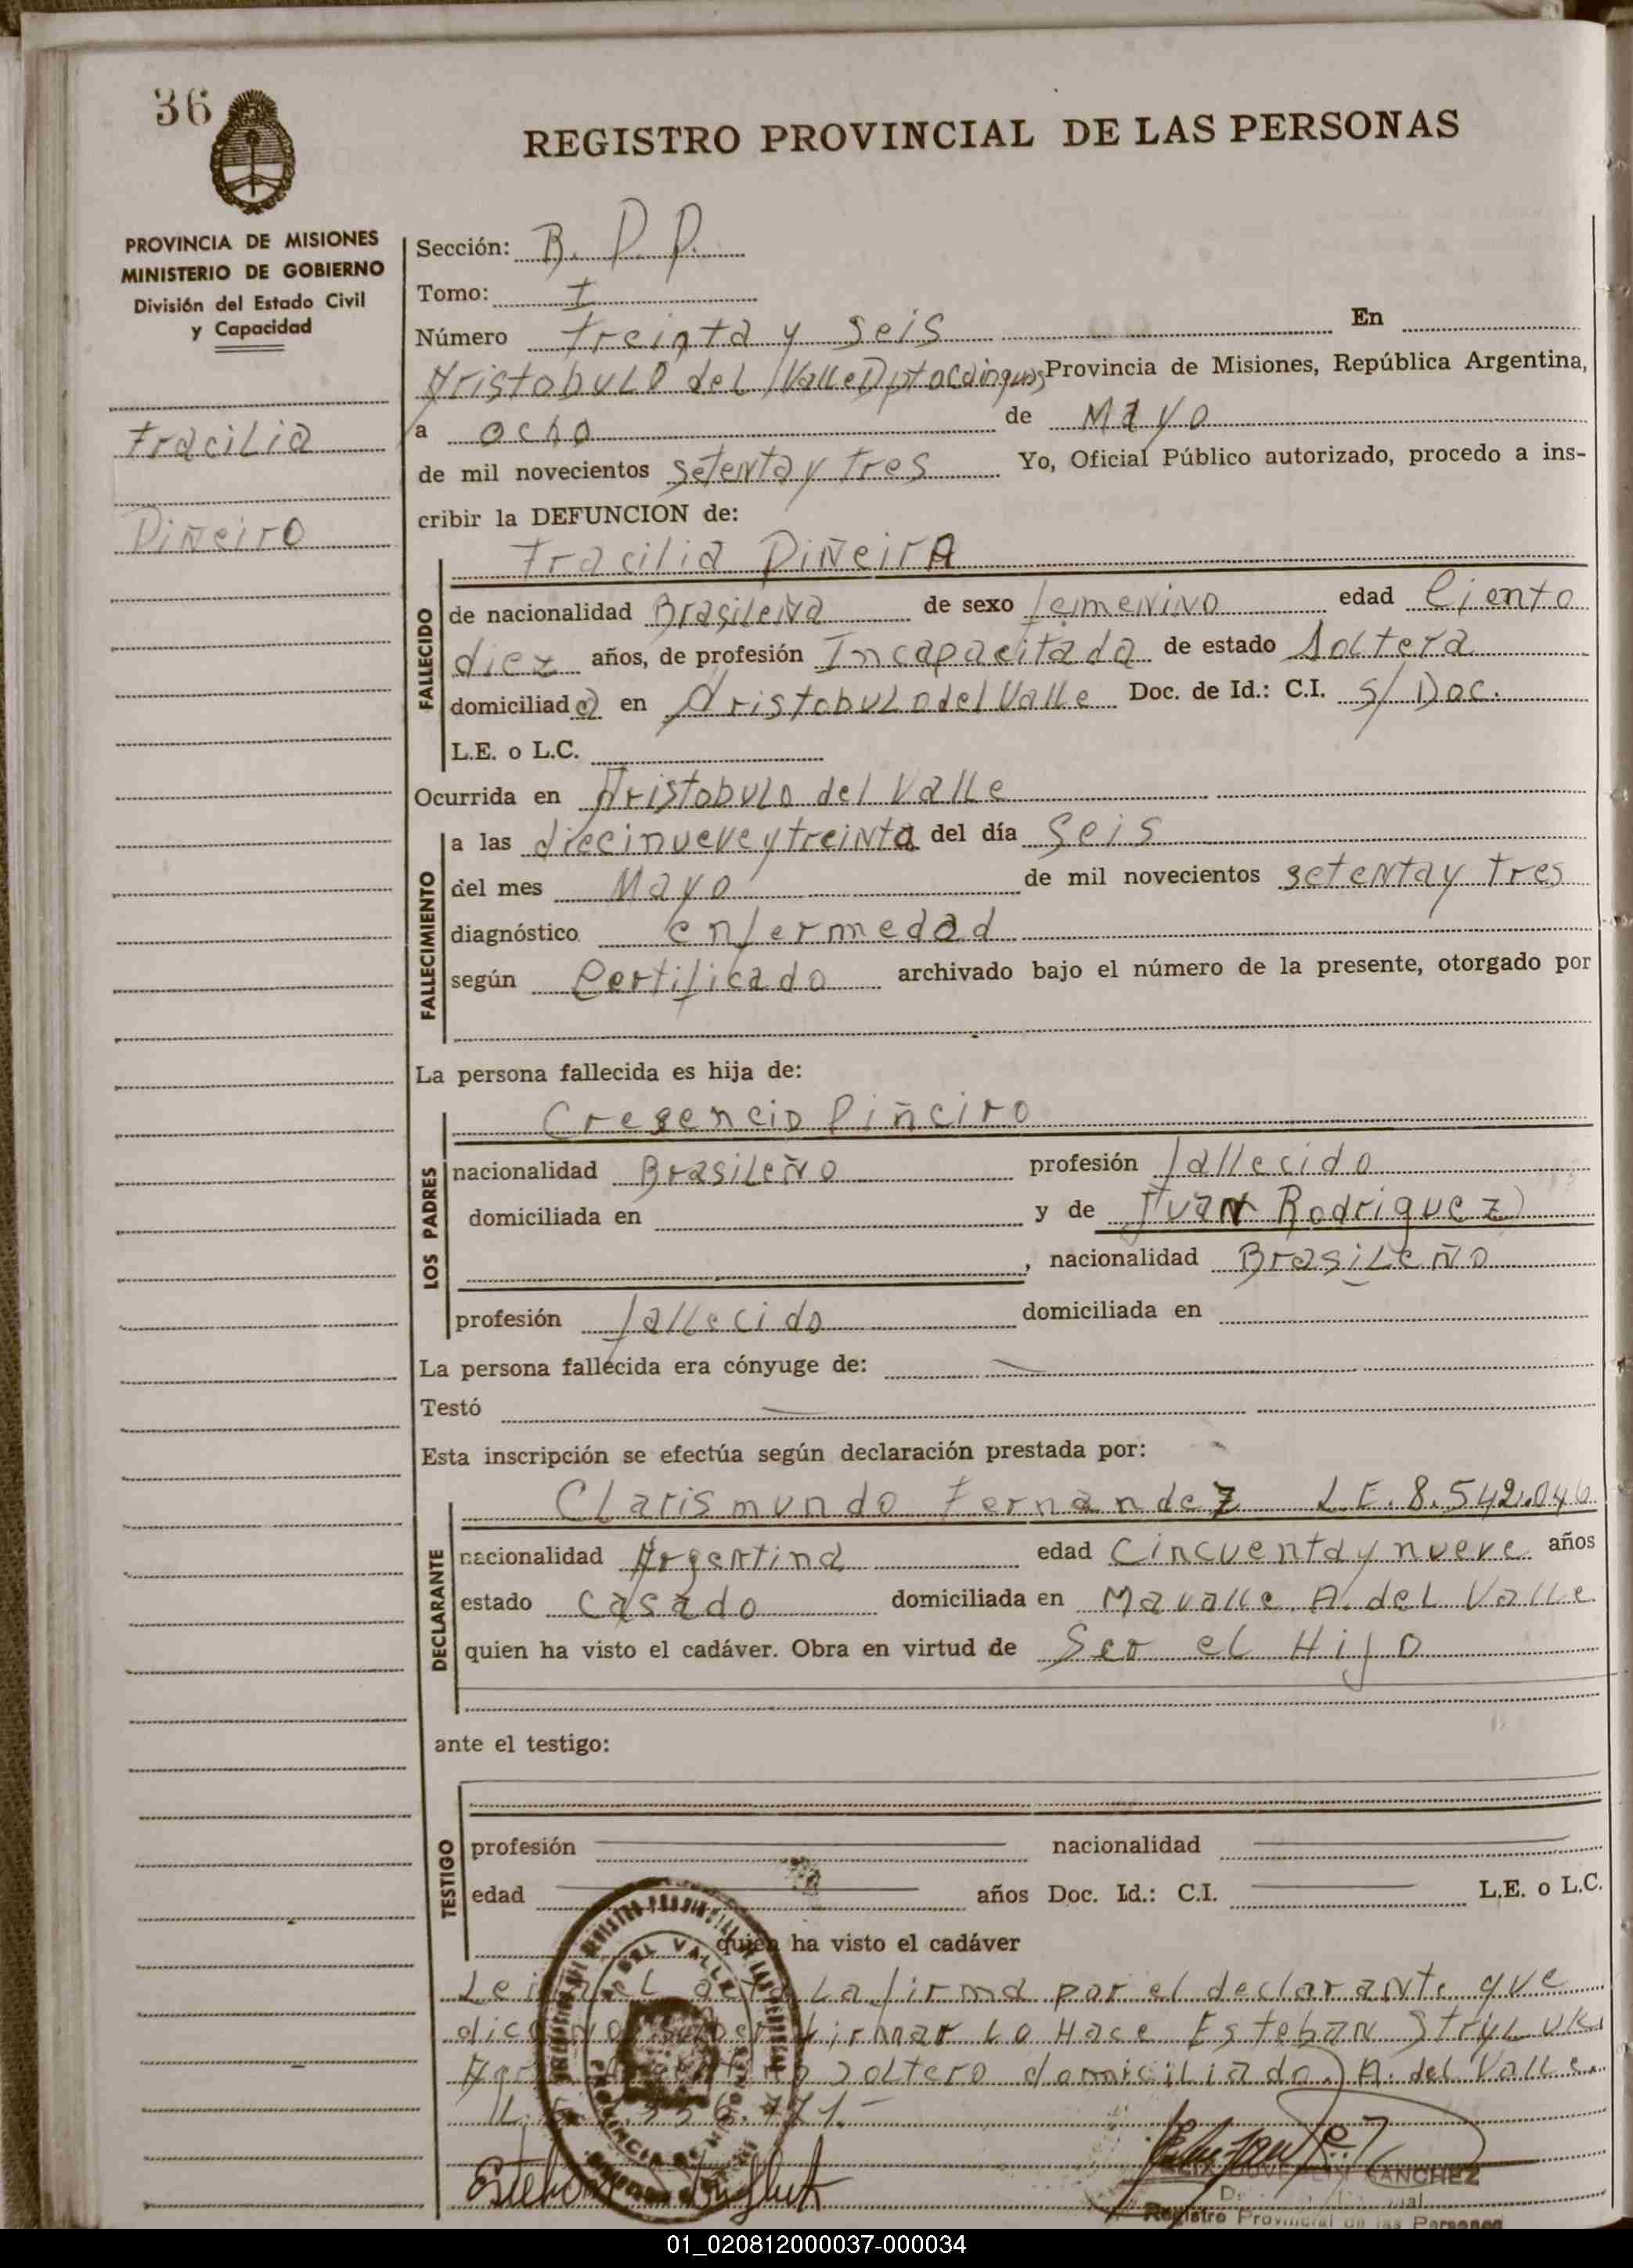 36
REGISTRO PROVINCIAL DE LAS PERSONAS
PROVINCIA DE MISIONES
MINISTERIO DE GOBIERNO
División del Estado Civil
y Capacidad
Fracilia
Piñeiro
Sección: B. P. P.
Tomo: I
Número treinta y seis En
Aristobulo del Valle Dpto Cainguas Provincia de Misiones, República Argentina,
a ocho de Mayo
de mil novecientos setenta y tres Yo, Oficial Público autorizado, procedo a ins-
cribir la DEFUNCION de:
Fracilia PiñeirA
FALLECIDO
de nacionalidad Brasileña de sexo femenino edad Ciento
diez años, de profesión Incapacitada de estado Soltera
domiciliad a en Aristobulo del Valle Doc. de Id.: C.I. s/Doc.
L.E. o L.C.
Ocurrida en Aristobulo del Valle
FALLECIMIENTO
a las diecinueve y treinta del día Seis
del mes Mayo de mil novecientos setenta y tres
diagnóstico enfermedad
según Certificado archivado bajo el número de la presente, otorgado por
La persona fallecida es hija de:
LOS PADRES
Cresencio Piñeiro
nacionalidad Brasileño profesión fallecido
domiciliada en y de Juan Rodriguez
, nacionalidad Brasileño
profesión fallecido domiciliada en
La persona fallecida era cónyuge de: —
Testó —
Esta inscripción se efectúa según declaración prestada por:
DECLARANTE
Clarismundo Fernandez L.E. 8.542.046
nacionalidad Argentina edad Cincuenta y nueve años
estado Casado domiciliada en Mavalle A. del Valle
quien ha visto el cadáver. Obra en virtud de Ser el Hijo
ante el testigo:
TESTIGO
profesión nacionalidad
edad años Doc. Id.: C.I. L.E. o L.C.
quien ha visto el cadáver
La firma por el declarante que
dice no saber firmar Lo Hace Esteban
soltero domiciliado A. del Valle
SANCHEZ
Registro Provincial de las Personas
01_020812000037-000034